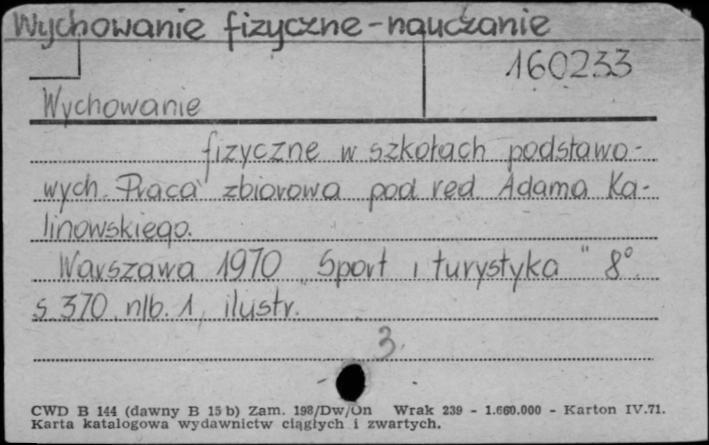 Wychowanie fizyczne - nauczanie
160233
Wychowanie
fizyczne w szkołach podstawo-
wych. Praca zbiorowa pod red. Adama Ka-
linowskiego.
Warszawa 1970 „Sport i turystyka" 8°.
s. 370, nlb. 1, ilustr.
3.
CWD B 144 (dawny B 15 b) Zam. 198/Dw/On Wrak 239 - 1.660.000 - Karton IV.71.
Karta katalogowa wydawnictw ciągłych i zwartych.